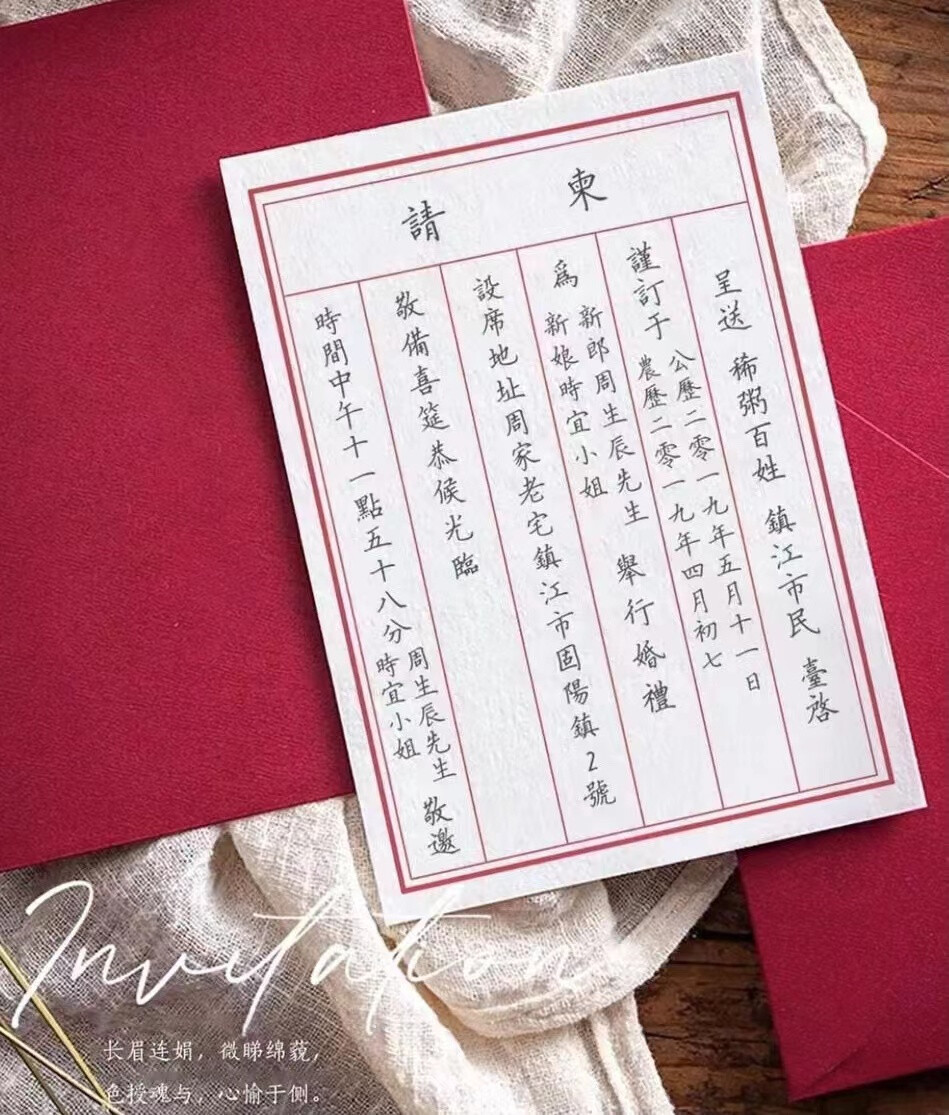 請柬
呈送 稀粥百姓 鎮江市民 臺啓
謹訂于
公歷二零一九年五月十一日
農歷二零一九年四月初七
爲
新郎周生辰先生
新娘時宜小姐
舉行婚禮
設席地址周家老宅鎮江市固陽鎮2號
敬備喜筵恭候光臨
時間中午十一點五十八分
周生辰先生
時宜小姐
敬邀
Invitation
长眉连娟，微睇绵藐，
色授魂与，心愉于侧。